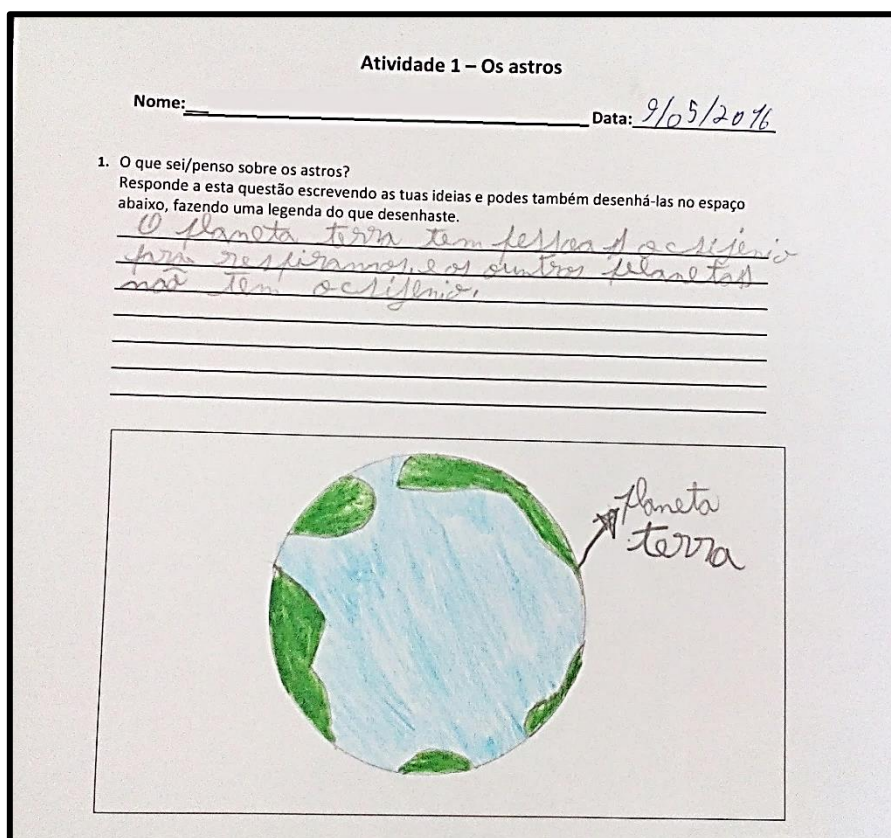 Atividade 1 – Os astros
Nome: Data: 9/05/2016
1. O que sei/penso sobre os astros?
Responde a esta questão escrevendo as tuas ideias e podes também desenhá-las no espaço
abaixo, fazendo uma legenda do que desenhaste.
O planeta terra tem pessoas ocsijénio
para respiramos, e os outros planetas
não tem ocsijenio.
planeta
terra